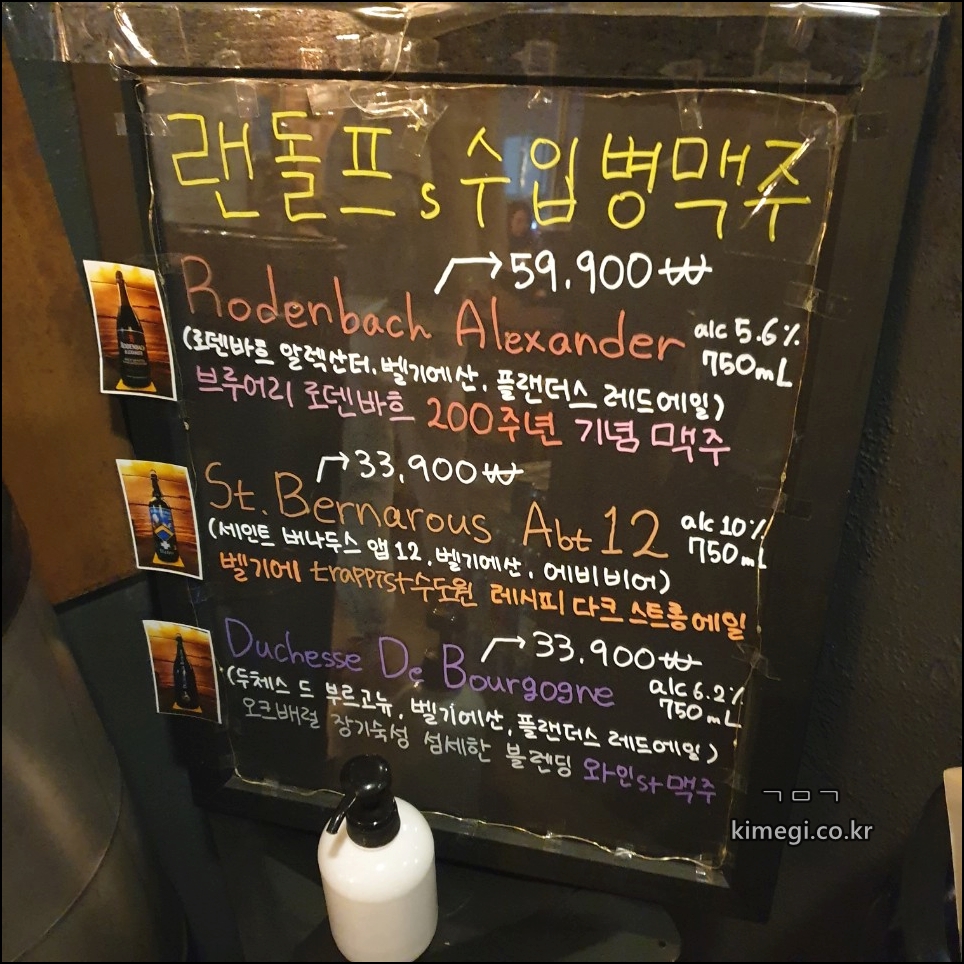 랜돌프s 수입병맥주
→59.900₩
Rodenbach Alexander
alc 5.6%
750mL
(로덴바흐 알렉산더, 벨기에산, 플랜더스 레드에일)
브루어리 로덴바흐 200주년 기념 맥주
→33,900₩
St. Bernarous Abt 12
alc 10%
750mL
(세인트 버나두스 앱 12, 벨기에산, 에비비어)
벨기에 trappist수도원 레시피 다크 스트롱에일
→33.900₩
Duchesse De Bourgogne
alc 6.2%
750mL
(두체스 드 부르고뉴, 벨기에산, 플랜더스 레드에일)
오크배럴 장기숙성 섬세한 블렌딩 와인st맥주
ㄱㅁㄱ
kimegi.co.kr